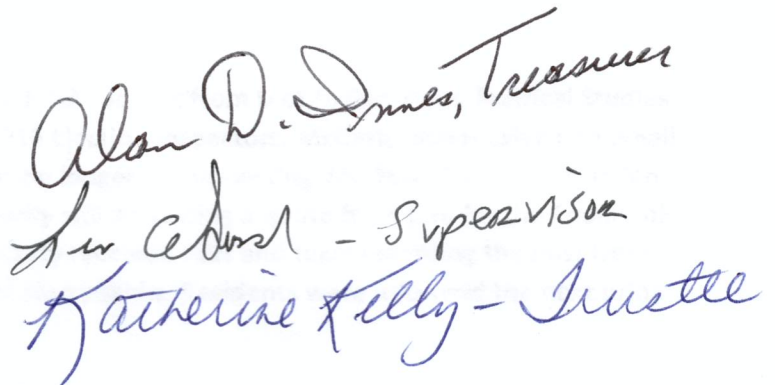 Alan D. Innes, Treasurer
- Supervisor
Katherine Kelly - Trustee